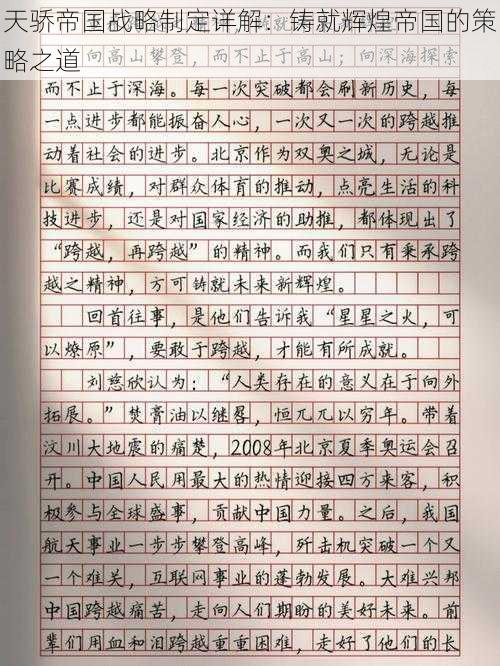 天骄帝国战略制定详解：铸就辉煌帝国的策
略之道
向高山攀登，而不止于高山；向深海探索
而不止于深海。每一次突破都会刷新历史，每
一点进步都能振奋人心，一次又一次的跨越推
动着社会的进步。北京作为双奥之城，无论是
比赛成绩，对群众体育的推动，点亮生活的科
技进步，还是对国家经济的助推，都体现出了
“跨越，再跨越”的精神。而我们只有秉承跨
越之精神，方可铸就未来新辉煌。
回首往事，是他们告诉我“星星之火，可
以燎原”，要敢于跨越，才能有所成就。
刘慈欣认为：“人类存在的意义在于向外
拓展。”焚膏油以继晷，恒兀兀以穷年。带着
汶川大地震的痛楚，2008年北京夏季奥运会召
开。中国人民用最大的热情迎接四方来客，积
极参与全球盛事，贡献中国力量。之后，我国
航天事业一步步攀登高峰，歼击机突破一个又
一个难关，互联网事业的蓬勃发展。大难兴邦
中国跨越痛苦，走向人们期盼的美好未来。前
辈们用血和泪跨越重重困难，走好了他们的长